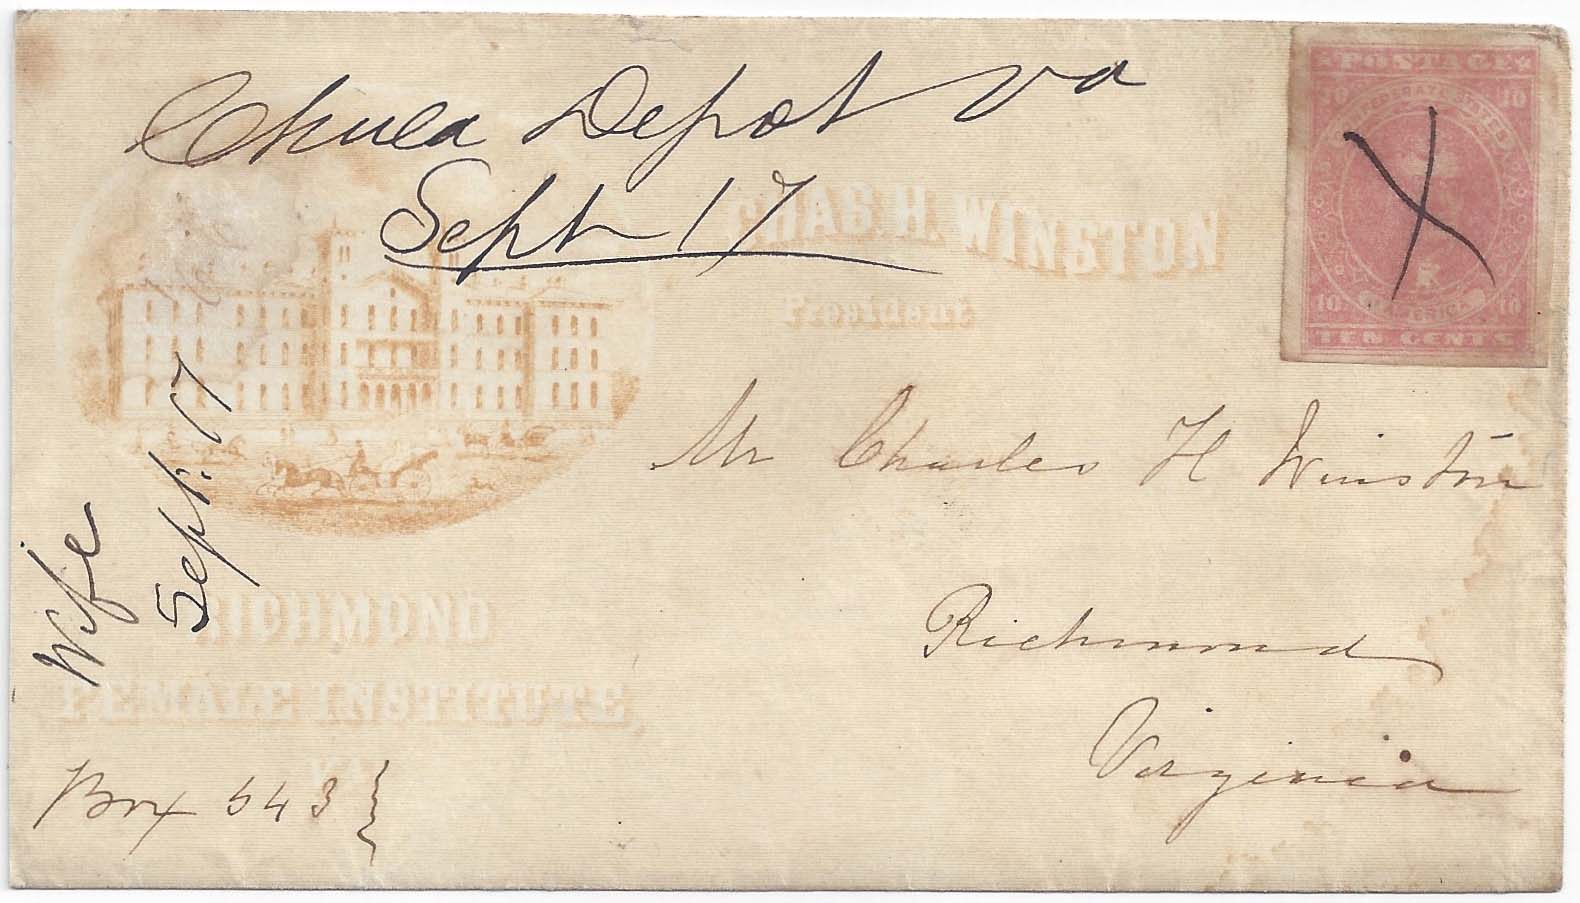 Chula Depot Va
Sept 17
CHAS. H. WINSTON
President
★POSTAGE★
10 10
10 10
TEN CENTS
Mr Charles H Winston
Richmond
Virginia
Wife
Sept. 17
RICHMOND
FEMALE INSTITUTE,
VA.
Box 543